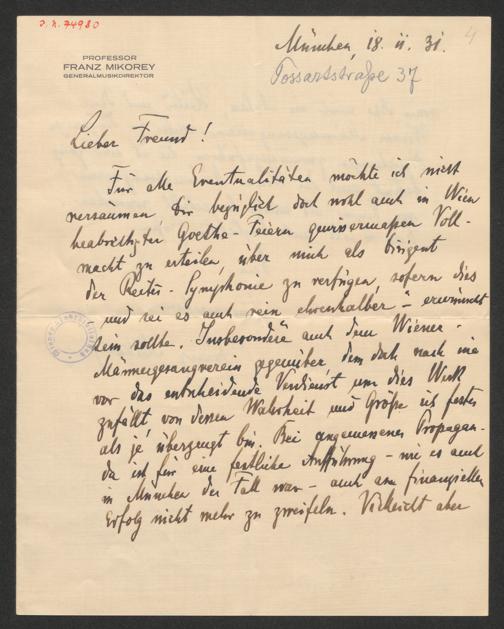 J. N. 74980
4
PROFESSOR
FRANZ MIKOREY
GENERALMUSIKDIREKTOR
München, 18. II. 31.
Possartstraße 37
Lieber Freund!
Für alle Eventualitäten möchte ich nicht
versäumen, Dir bezüglich doch wohl auch in Wien
beabsichtigter Goethe-Feiern gewissermaßen Voll-
macht zu erteilen, über mich als Dirigent
der Symphonie zu verfügen, sofern dies
und sei es auch rein ehrenhalber – erwünscht
sein sollte. Insbesondere auch dem Wiener-
Männergesangverein gegenüber, dem doch nach wie
vor das entscheidende Verdienst um dies Werk
zufällt, von dessen Wahrheit und Größe ich fester
als je überzeugt bin. Bei angemessener Propagan-
da ist für eine festliche Aufführung – wie es auch
in München der Fall war – auch am finanziellen
Erfolg nicht mehr zu zweifeln. Vielleicht aber